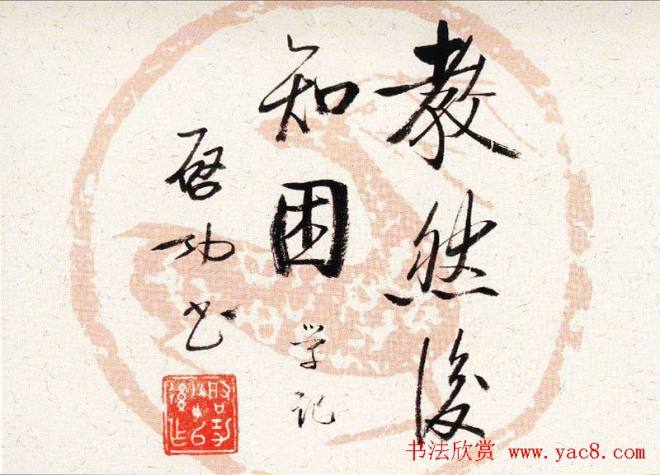 教然後
知困
学记
启功书
书法欣赏 www.yac8.com